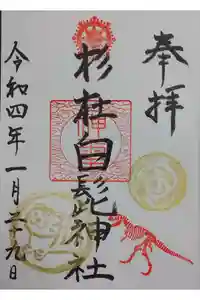 奉拝
杉杜白髭神社
令和四年一月二十九日